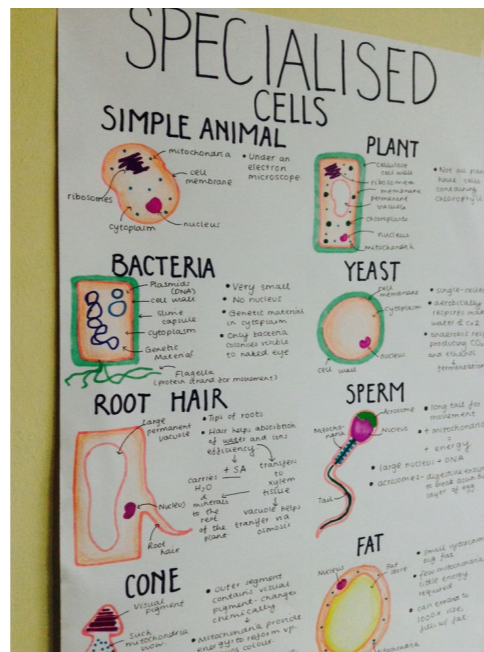 SPECIALISED
CELLS
SIMPLE ANIMAL
mitochondria
cell
membrane
ribosomes
cytoplasm
nucleus
• Under an
electron
microscope
PLANT
cellulose
cell wall
ribosomes
membrane
permanent
vacuole
chloroplasts
nucleus
mitochondria
• Not all
have cells
containing
BACTERIA
Plasmids
(DNA)
cell wall
slime
capsule
cytoplasm
Genetic
Material
Flagella
(protein strand for movement)
• Very small
• No nucleus
• Genetic material
in cytoplasm
• Only
colonies visible
to naked eye
YEAST
cell
membrane
cytoplasm
nucleus
cell wall
• aerobically
respires
water & CO2
• anaerobic
producing CO2
and ethanol
ROOT HAIR
Large
permanent
vacuole
Nucleus
Root
hair
• Tips of roots
• Hair helps absorbtion
of water and ions
efficiency
+ SA
carries
H2O
&
minerals
to the
rest
of the
plant
transfers
to
xylem
tissue
vacuole helps
transfer via
osmosis
SPERM
Acrosome
Nucleus
Tail
• long tail for
movement
• + mitochondria
=
+ energy
• large nucleus + DNA
layer of egg
CONE
Visual
pigment
such
mitochondria
wow
• outer segment
contains visual
pigment-changes
chemically
• Mitochondria provide
energy to reform v.p.
colour.
FAT
Nucleus
Fat
• small
• few mitochondria
little energy
required
• can expand to
1000x size,